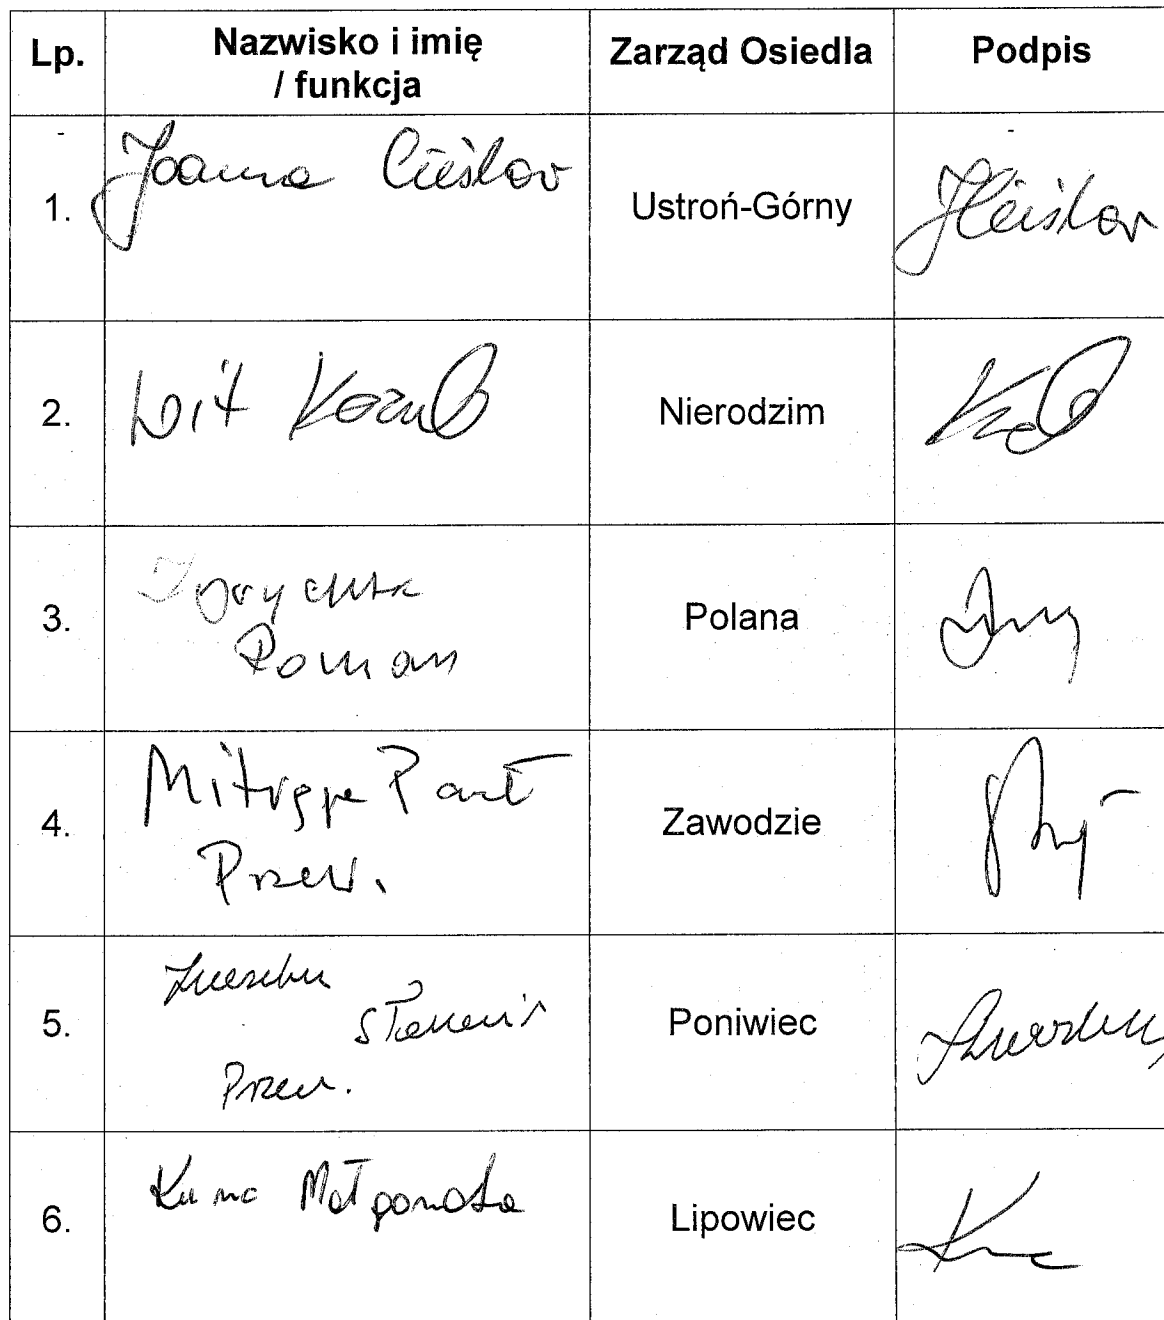 Lp. Nazwisko i imię / funkcja Zarząd Osiedla Podpis
1. Joanna Cieślar Ustroń-Górny JCieślar
2. Wit Kozub Nierodzim
3. Roman Polana
4. Mitręga Paweł Przew. Zawodzie
5. Przew. Poniwiec
6. Kunc Małgorzata Lipowiec Kunc